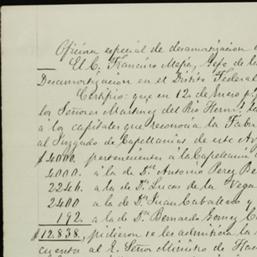 Oficina especial de desamortizacion
El C. Francisco Mejia, Gefe de la
Desamortizacion en el Distrito Federal
Certifico: que en 12 de Enero
los Señores Martinez del Rio Herm.
á los capitales que reconocia la
al Juzgado de Capellanías de este
$4000. pertenecientes á la Capellanía
4000. á la de Dn. Antonio Perez
2246. á la de Dr. Lucas de la Vega
2400 á la de Dn. Juan Caballero y
192. á la de Dn. Bernardo Gomez
$12.838, pidieron se les admitiera la
cuenta al E. Señor Ministro de